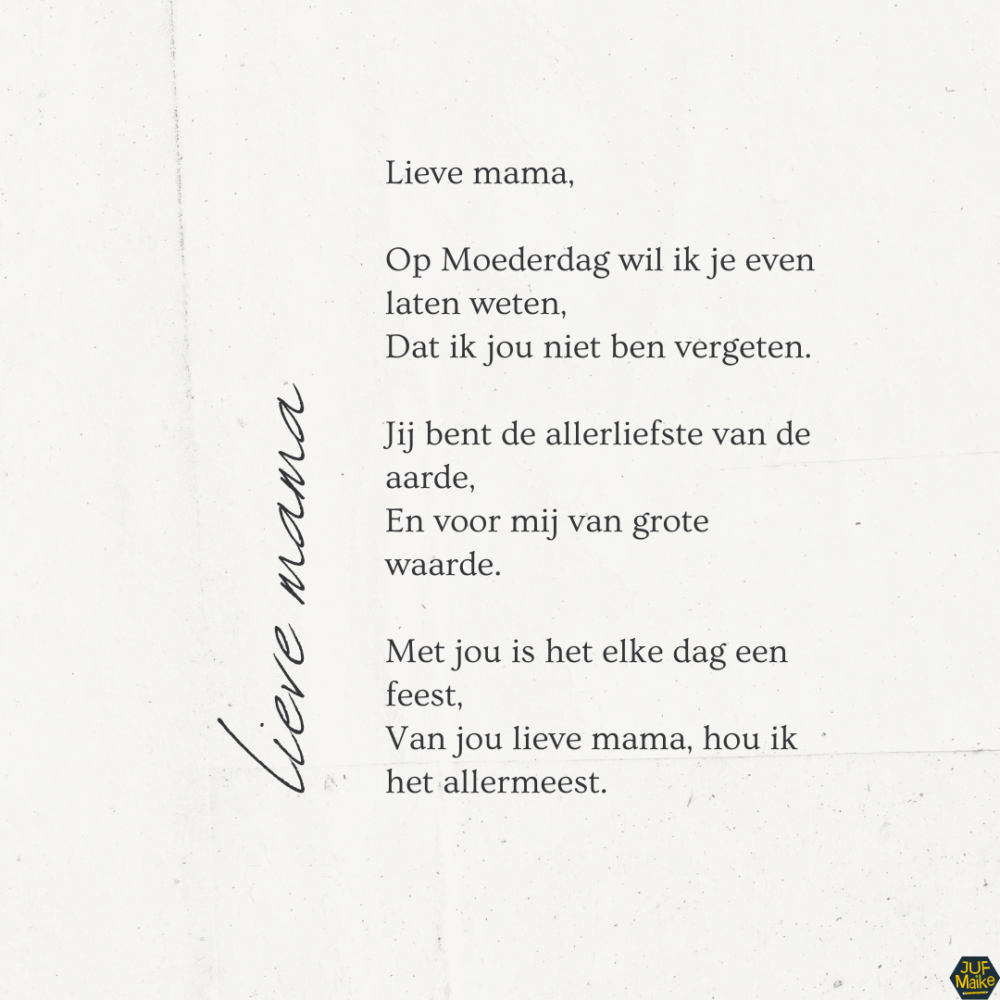 Lieve mama,
Op Moederdag wil ik je even
laten weten,
Dat ik jou niet ben vergeten.
Jij bent de allerliefste van de
aarde,
En voor mij van grote
waarde.
Met jou is het elke dag een
feest,
Van jou lieve mama, hou ik
het allermeest.
lieve mama
JUF
Maike